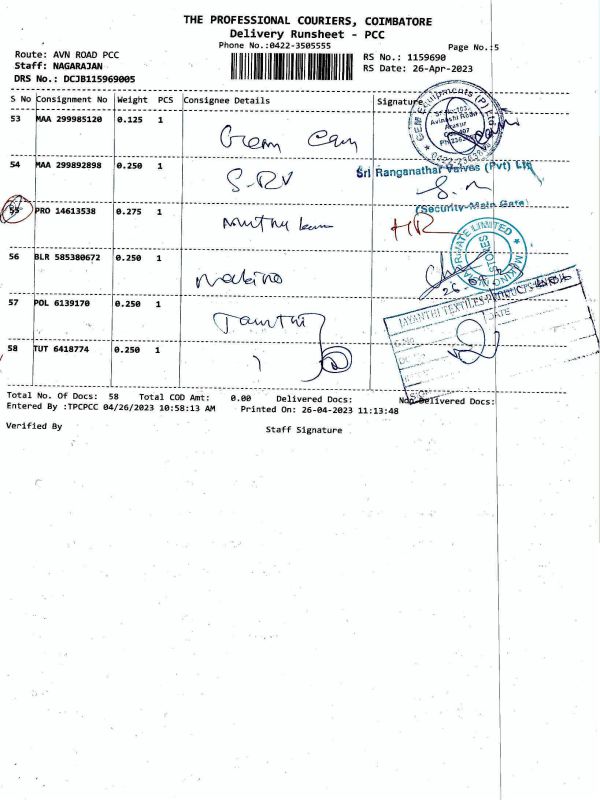 THE PROFESSIONAL COURIERS, COIMBATORE
Delivery Runsheet - PCC
Phone No.:0422-3505555
Page No.:5
Route: AVN ROAD PCC
RS No.: 1159690
Staff: NAGARAJAN
RS Date: 26-Apr-2023
DRS No.: DCJB115969005
S No Consignment No Weight PCS Consignee Details Signature
53 MAA 299985120 0.125 1
GEM Equipments (P) Ltd
54 MAA 299892898 0.250 1 S.RV
Sri Ranganathar Valves (Pvt) Ltd
(Security-Main Gate)
55 PRO 14613538 0.275 1 HR
56 BLR 585380672 0.250 1
57 POL 6139170 0.250 1
JAYANTHI TEXTILES PRODUCTS
DATE
58 TUT 6418774 0.250 1
Total No. Of Docs: 58 Total COD Amt: 0.00 Delivered Docs: Non Delivered Docs:
Entered By :TPCPCC 04/26/2023 10:58:13 AM Printed On: 26-04-2023 11:13:48
Verified By Staff Signature